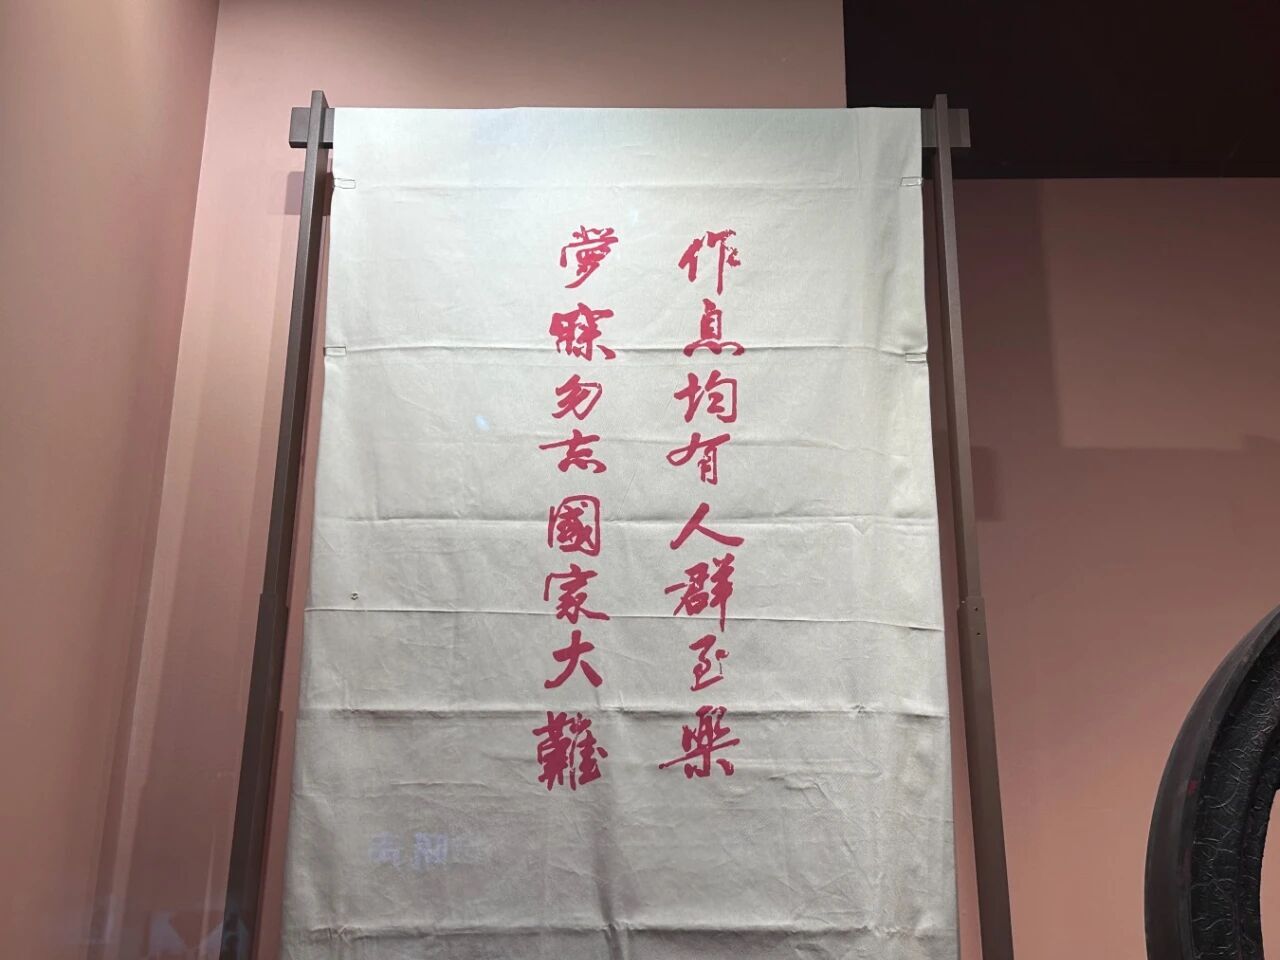 作息均有人群至樂
夢寐勿忘國家大難